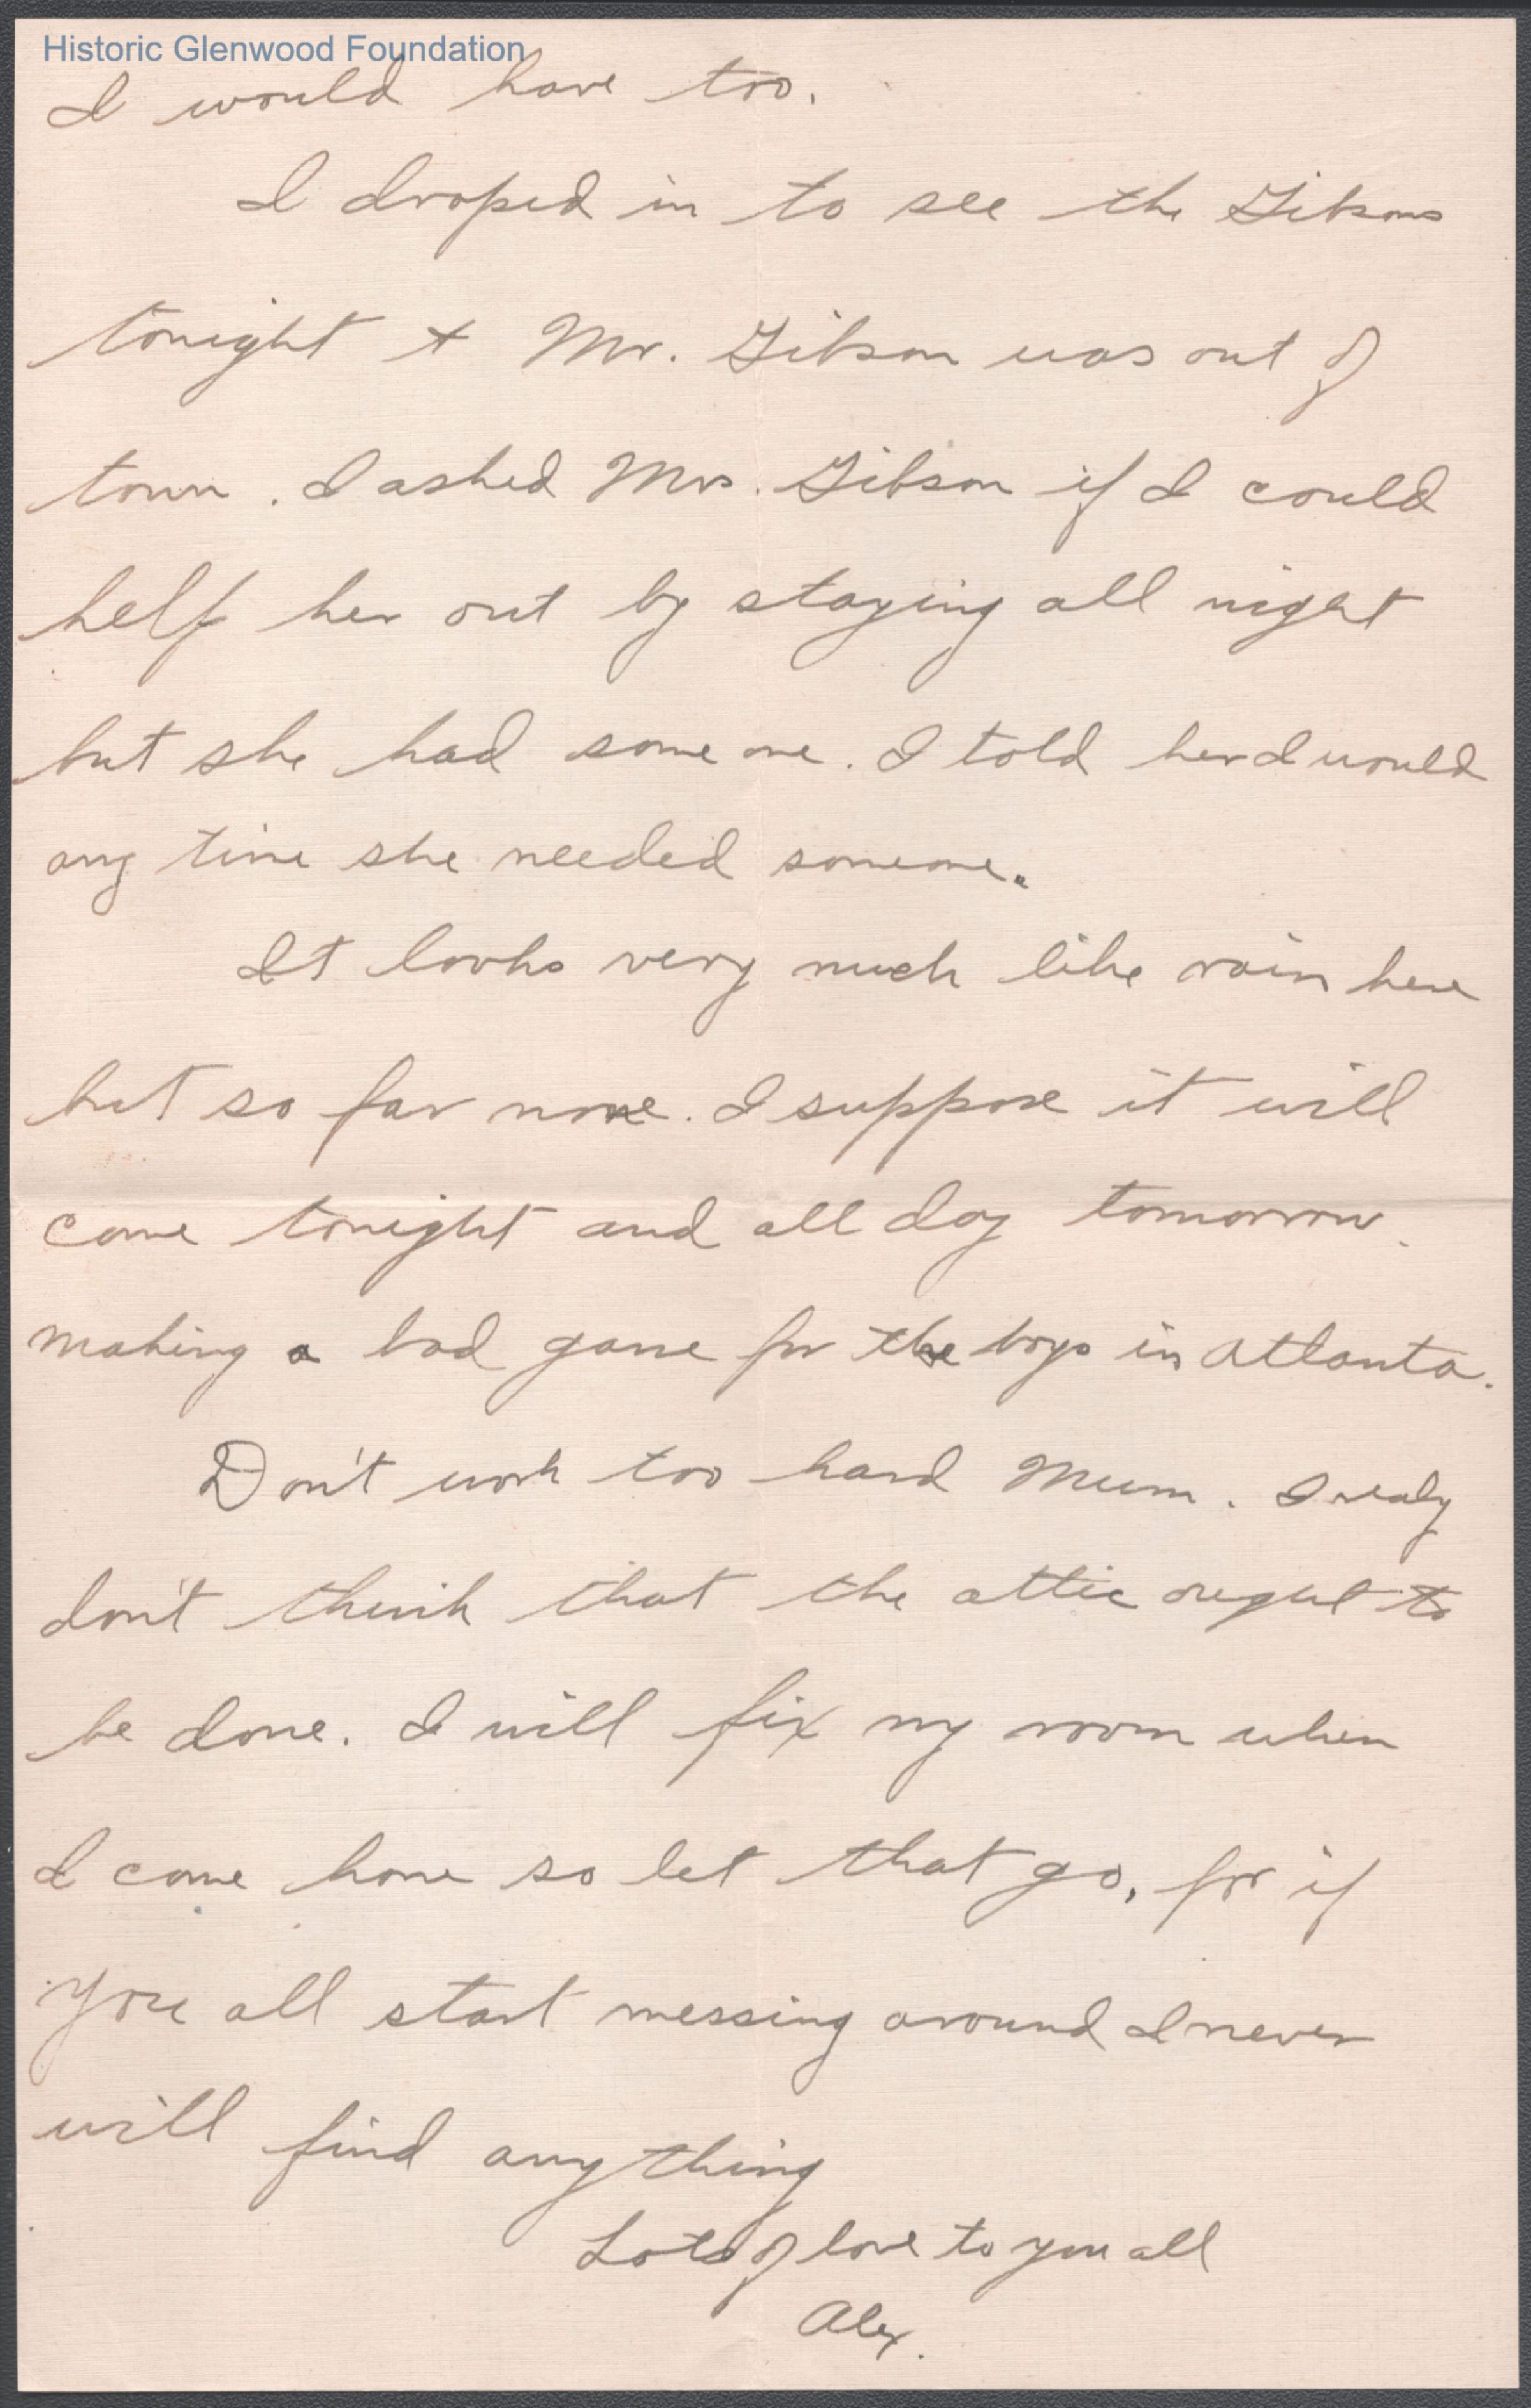 Historic Glenwood Foundation
I would have too.
I droped in to see the Gibsons
tonight + Mr. Gibson was out of
town. I asked Mrs. Gibson if I could
help her out by staying all night
but she had some one. I told her I would
any time she needed someone.
It looks very much like rain here
but so far none. I suppose it will
come tonight and all day tomorrow.
making a bad game for the boys in Atlanta.
Don't work too hard Mum. I realy
don't think that the attic ought to
be done. I will fix my room when
I come home so let that go, for if
you all start messing around I never
will find anything
Lots of love to you all
Alex.